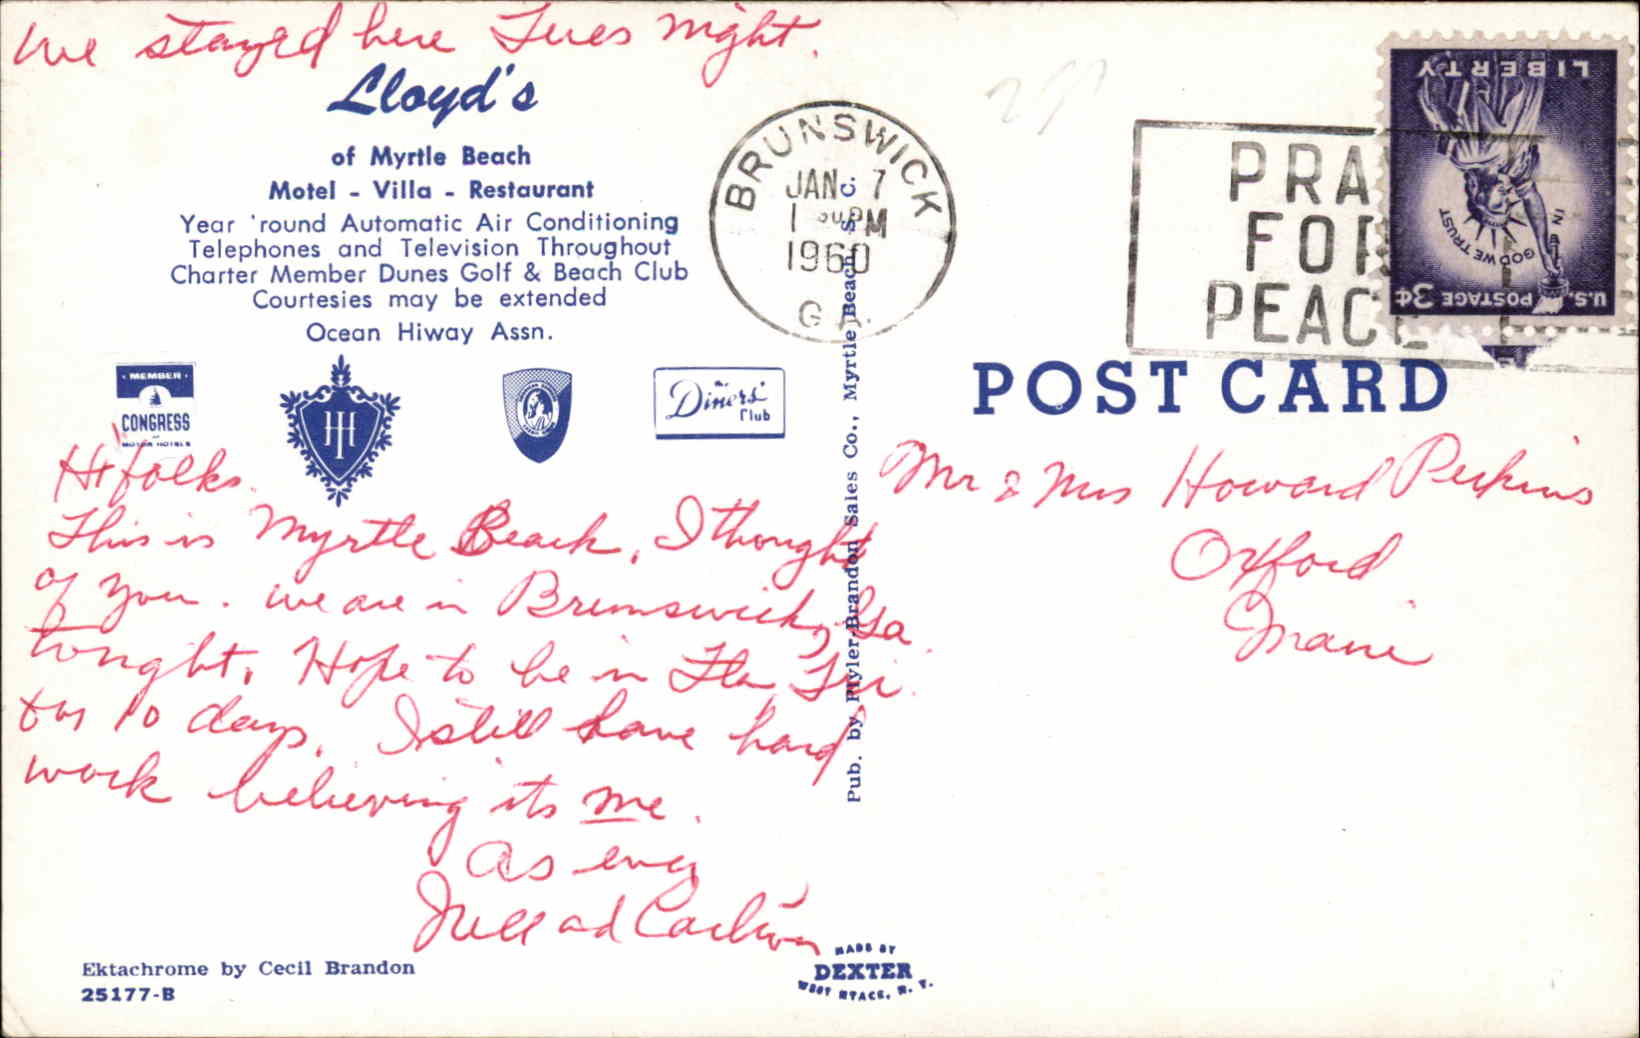 we stayed here Tues night.
Lloyd's
of Myrtle Beach
Motel - Villa - Restaurant
Year 'round Automatic Air Conditioning
Telephones and Television Throughout
Charter Member Dunes Golf & Beach Club
Courtesies may be extended
Ocean Hiway Assn.
· MEMBER ·
CONGRESS
OF
MOTOR HOTELS
The Diners' Club
Hi folks.
This is Myrtle Beach, I thought
of you. we are in Brunswick, Ga.
tonight. Hope to be in Fla, Fri.
for 10 days. I still have hard
work believing its me.
As ever
Nell and Carlton
Ektachrome by Cecil Brandon
25177-B
Pub. by Plyler-Brandon Sales Co., Myrtle Beach, S. C.
MADE BY
DEXTER
WEST NYACK, N. Y.
BRUNSWICK
JAN 7
1 30 PM
1960
GA.
PRAY
FOR
PEACE
LIBERTY
IN GOD WE TRUST
U.S. POSTAGE 3¢
POST CARD
Mr & Mrs Howard Perkins
Oxford
Maine